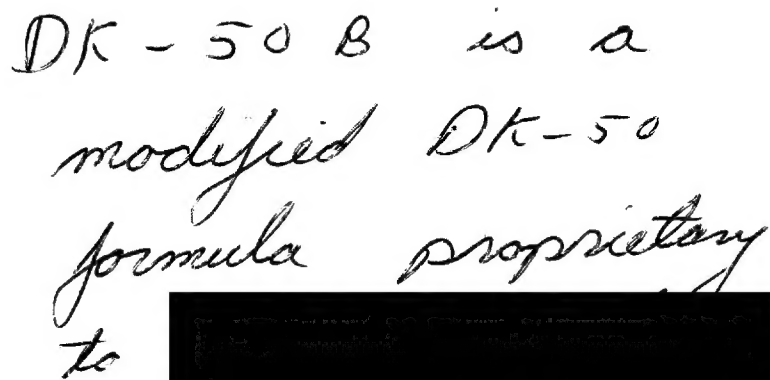 DK-50 B is a
modified DK-50
formula proprietary
to